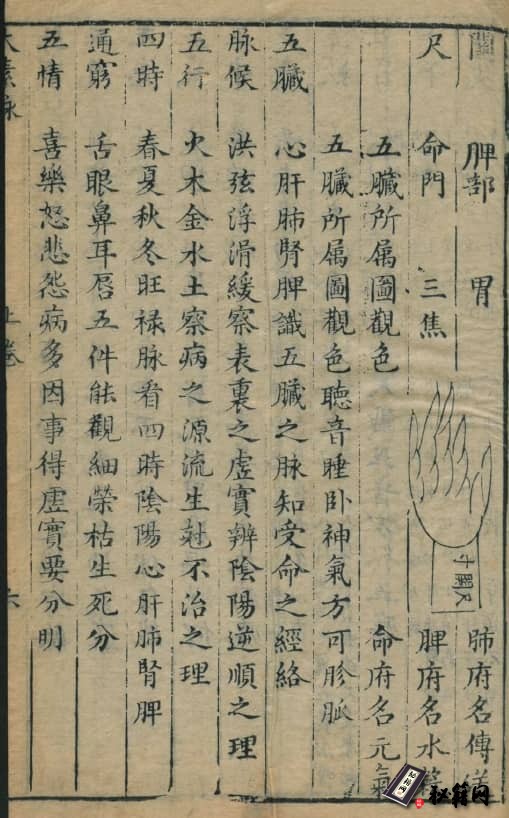 關 脾部 胃 肺府名傳送
尺 命門 三焦 脾府名水穀
命府名元氣
五臟所属圖觀色
五臟所属圖觀色聽音睡卧神氣方可胗脈
五臟 心肝肺腎脾識五臟之脉知受命之經絡
脉候 洪弦浮滑緩察表裏之虛實辨陰陽逆順之理
五行 火木金水土察病之源流生尅不治之理
四時 春夏秋冬旺禄脉看四時陰陽心肝肺腎脾
通竅 舌眼鼻耳唇五件能觀細榮枯生死分
五情 喜樂怒悲怨病多因事得虛實要分明
太素脉 上卷 六
寸關尺
秘籍网